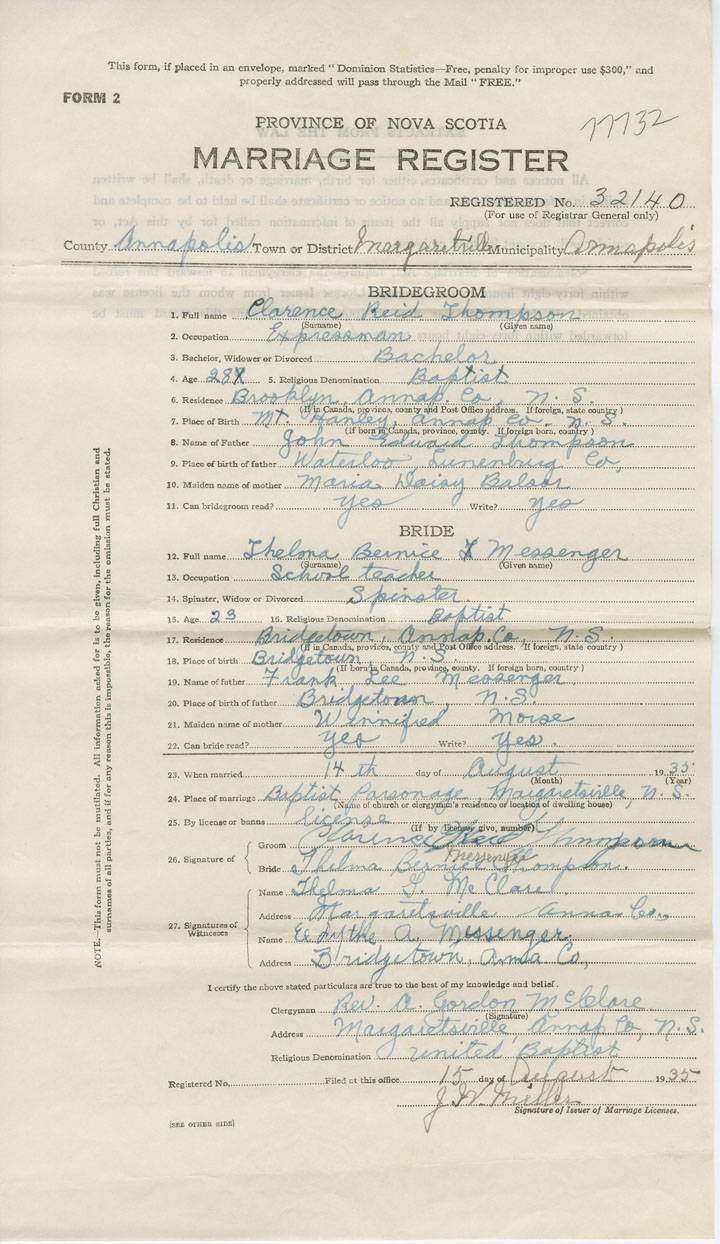 This form, if placed in an envelope, marked "Dominion Statistics—Free, penalty for improper use $300," and
properly addressed will pass through the Mail "FREE."
FORM 2
PROVINCE OF NOVA SCOTIA
77732
MARRIAGE REGISTER
REGISTERED No. 32140
(For use of Registrar General only)
County Annapolis Town or District Margaretville Municipality Annapolis
BRIDEGROOM
1. Full name Clarence Reid Thompson
(Surname) (Given name)
2. Occupation Expressman
3. Bachelor, Widower or Divorced Bachelor
4. Age 28 5. Religious Denomination Baptist
6. Residence Brooklyn, Annap. Co, N. S.
(If in Canada, province, county and Post Office address. If foreign, state country)
7. Place of Birth Mt. Hanley, Annap Co. N. S.
(If born in Canada, province, county. If foreign born, country)
8. Name of Father John Edward Thompson
9. Place of birth of father Waterloo Lunenburg Co,
10. Maiden name of mother Maria Daisy Balsor
11. Can bridegroom read? yes Write? yes
BRIDE
12. Full name Thelma Bernice Messenger
(Surname) (Given name)
13. Occupation School teacher
14. Spinster, Widow or Divorced Spinster
15. Age 23 16. Religious Denomination Baptist
17. Residence Bridgetown, Annap. Co, N. S.
(If in Canada, province, county and Post Office address. If foreign, state country)
18. Place of birth Bridgetown N. S.
(If born in Canada, province, county. If foreign born, country)
19. Name of father Frank Lee Messenger
20. Place of birth of father Bridgetown, N. S.
21. Maiden name of mother Winnified Morse
22. Can bride read? yes Write? yes
23. When married 14 th day of August 1935
(Month) (Year)
24. Place of marriage Baptist Parsonage Margaretsville, N. S.
(Name of church or clergyman's residence or location of dwelling house)
25. By license or banns license
(If by license, give, number)
26. Signature of
Groom Clarence Reid Thompson
Messenger
Bride Thelma Bernice Thompson.
27. Signatures of Witnesses
Name Thelma G. McClare
Address Margaretsville Anna. Co.,
Name A. Messenger
Address Bridgetown, Anna Co,
I certify the above stated particulars are true to the best of my knowledge and belief.
Clergyman Rev. A. Gordon McClare
(Signature)
Address Margaretsville, Annap Co, N. S.
Religious Denomination United Baptist
Registered No. Filed at this office 15 day of August 1935
J. W. Miller
Signature of Issuer of Marriage Licenses.
[SEE OTHER SIDE]
NOTE. This form must not be mutilated. All information asked for is to be given, including full Christian and
surnames of all parties, and if for any reason this is impossible, the reason for the omission must be stated.